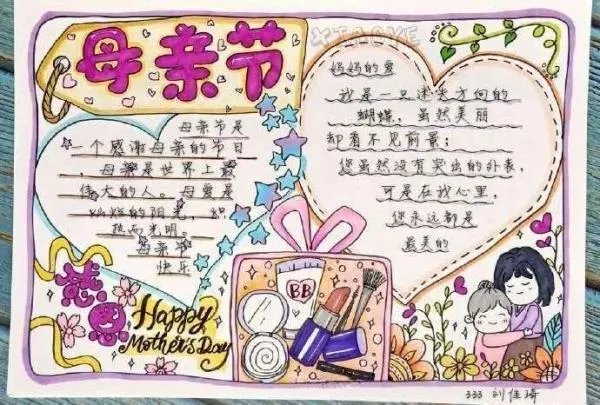 母亲节
XIAOYE
母亲节是
一个感谢母亲的节日
，母亲是世界上最
伟大的人。母爱是
灿烂的阳光，炽
热而光明。
母亲节
快乐
妈妈的爱
我是一只迷失方向的
蝴蝶，虽然美丽
却看不见前景；
您虽然没有突出的外表，
可是在我心里，
您永远都是
最美的
BB
Happy
Mother's Day
333 刘佳琦